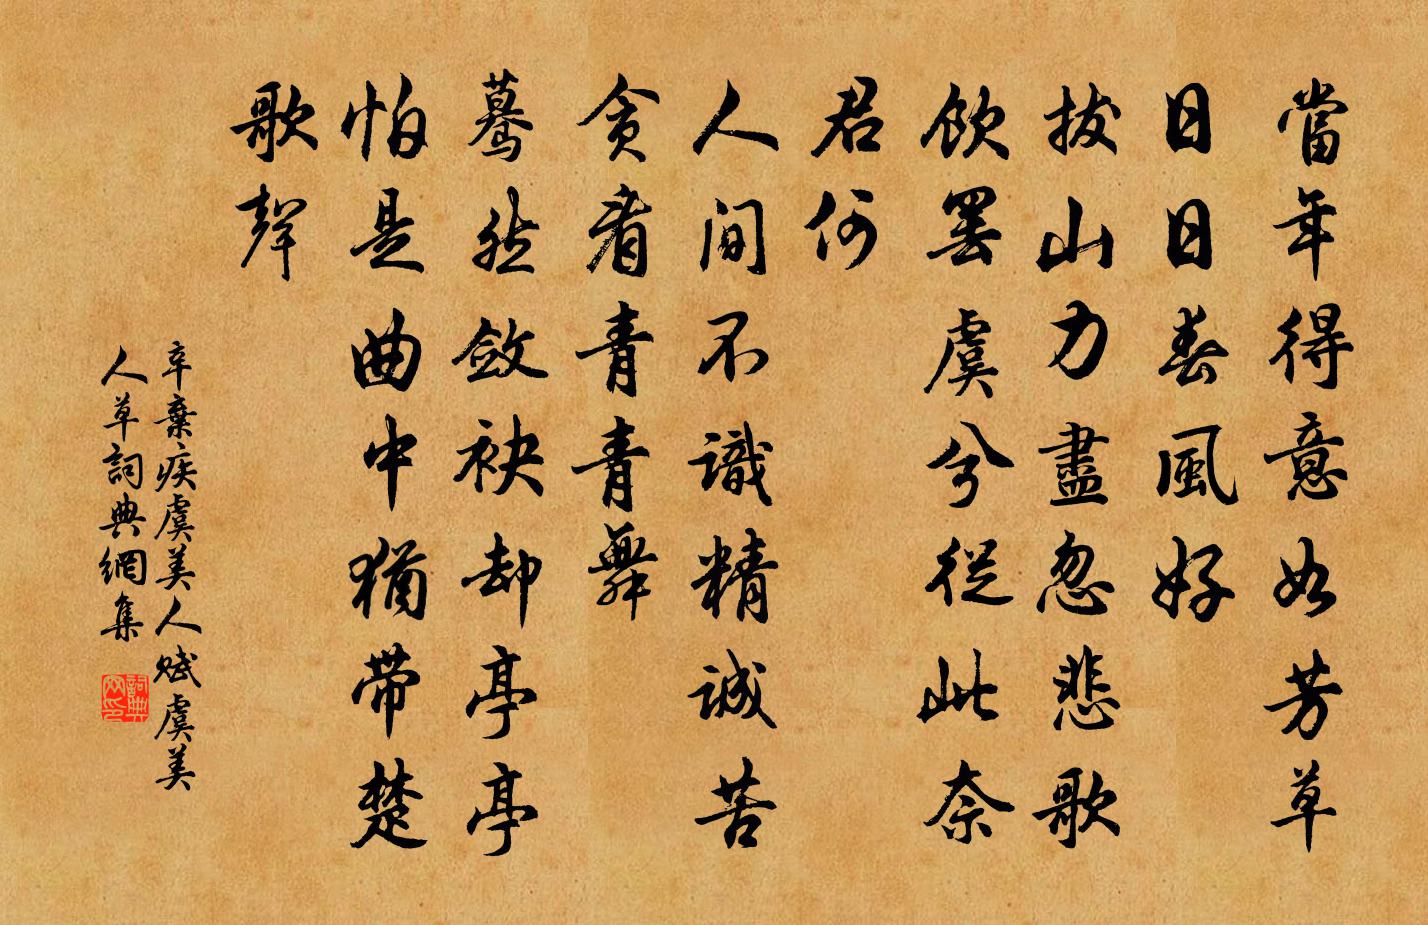 當年得意如芳草
日日春風好
拔山力盡忽悲歌
飲罷虞兮從此奈
君何
人間不識精誠苦
貪看青青舞
蓦然斂袂却亭亭
怕是曲中猶带楚
歌聲
辛棄疾虞美人賦虞美
人草詞典網集